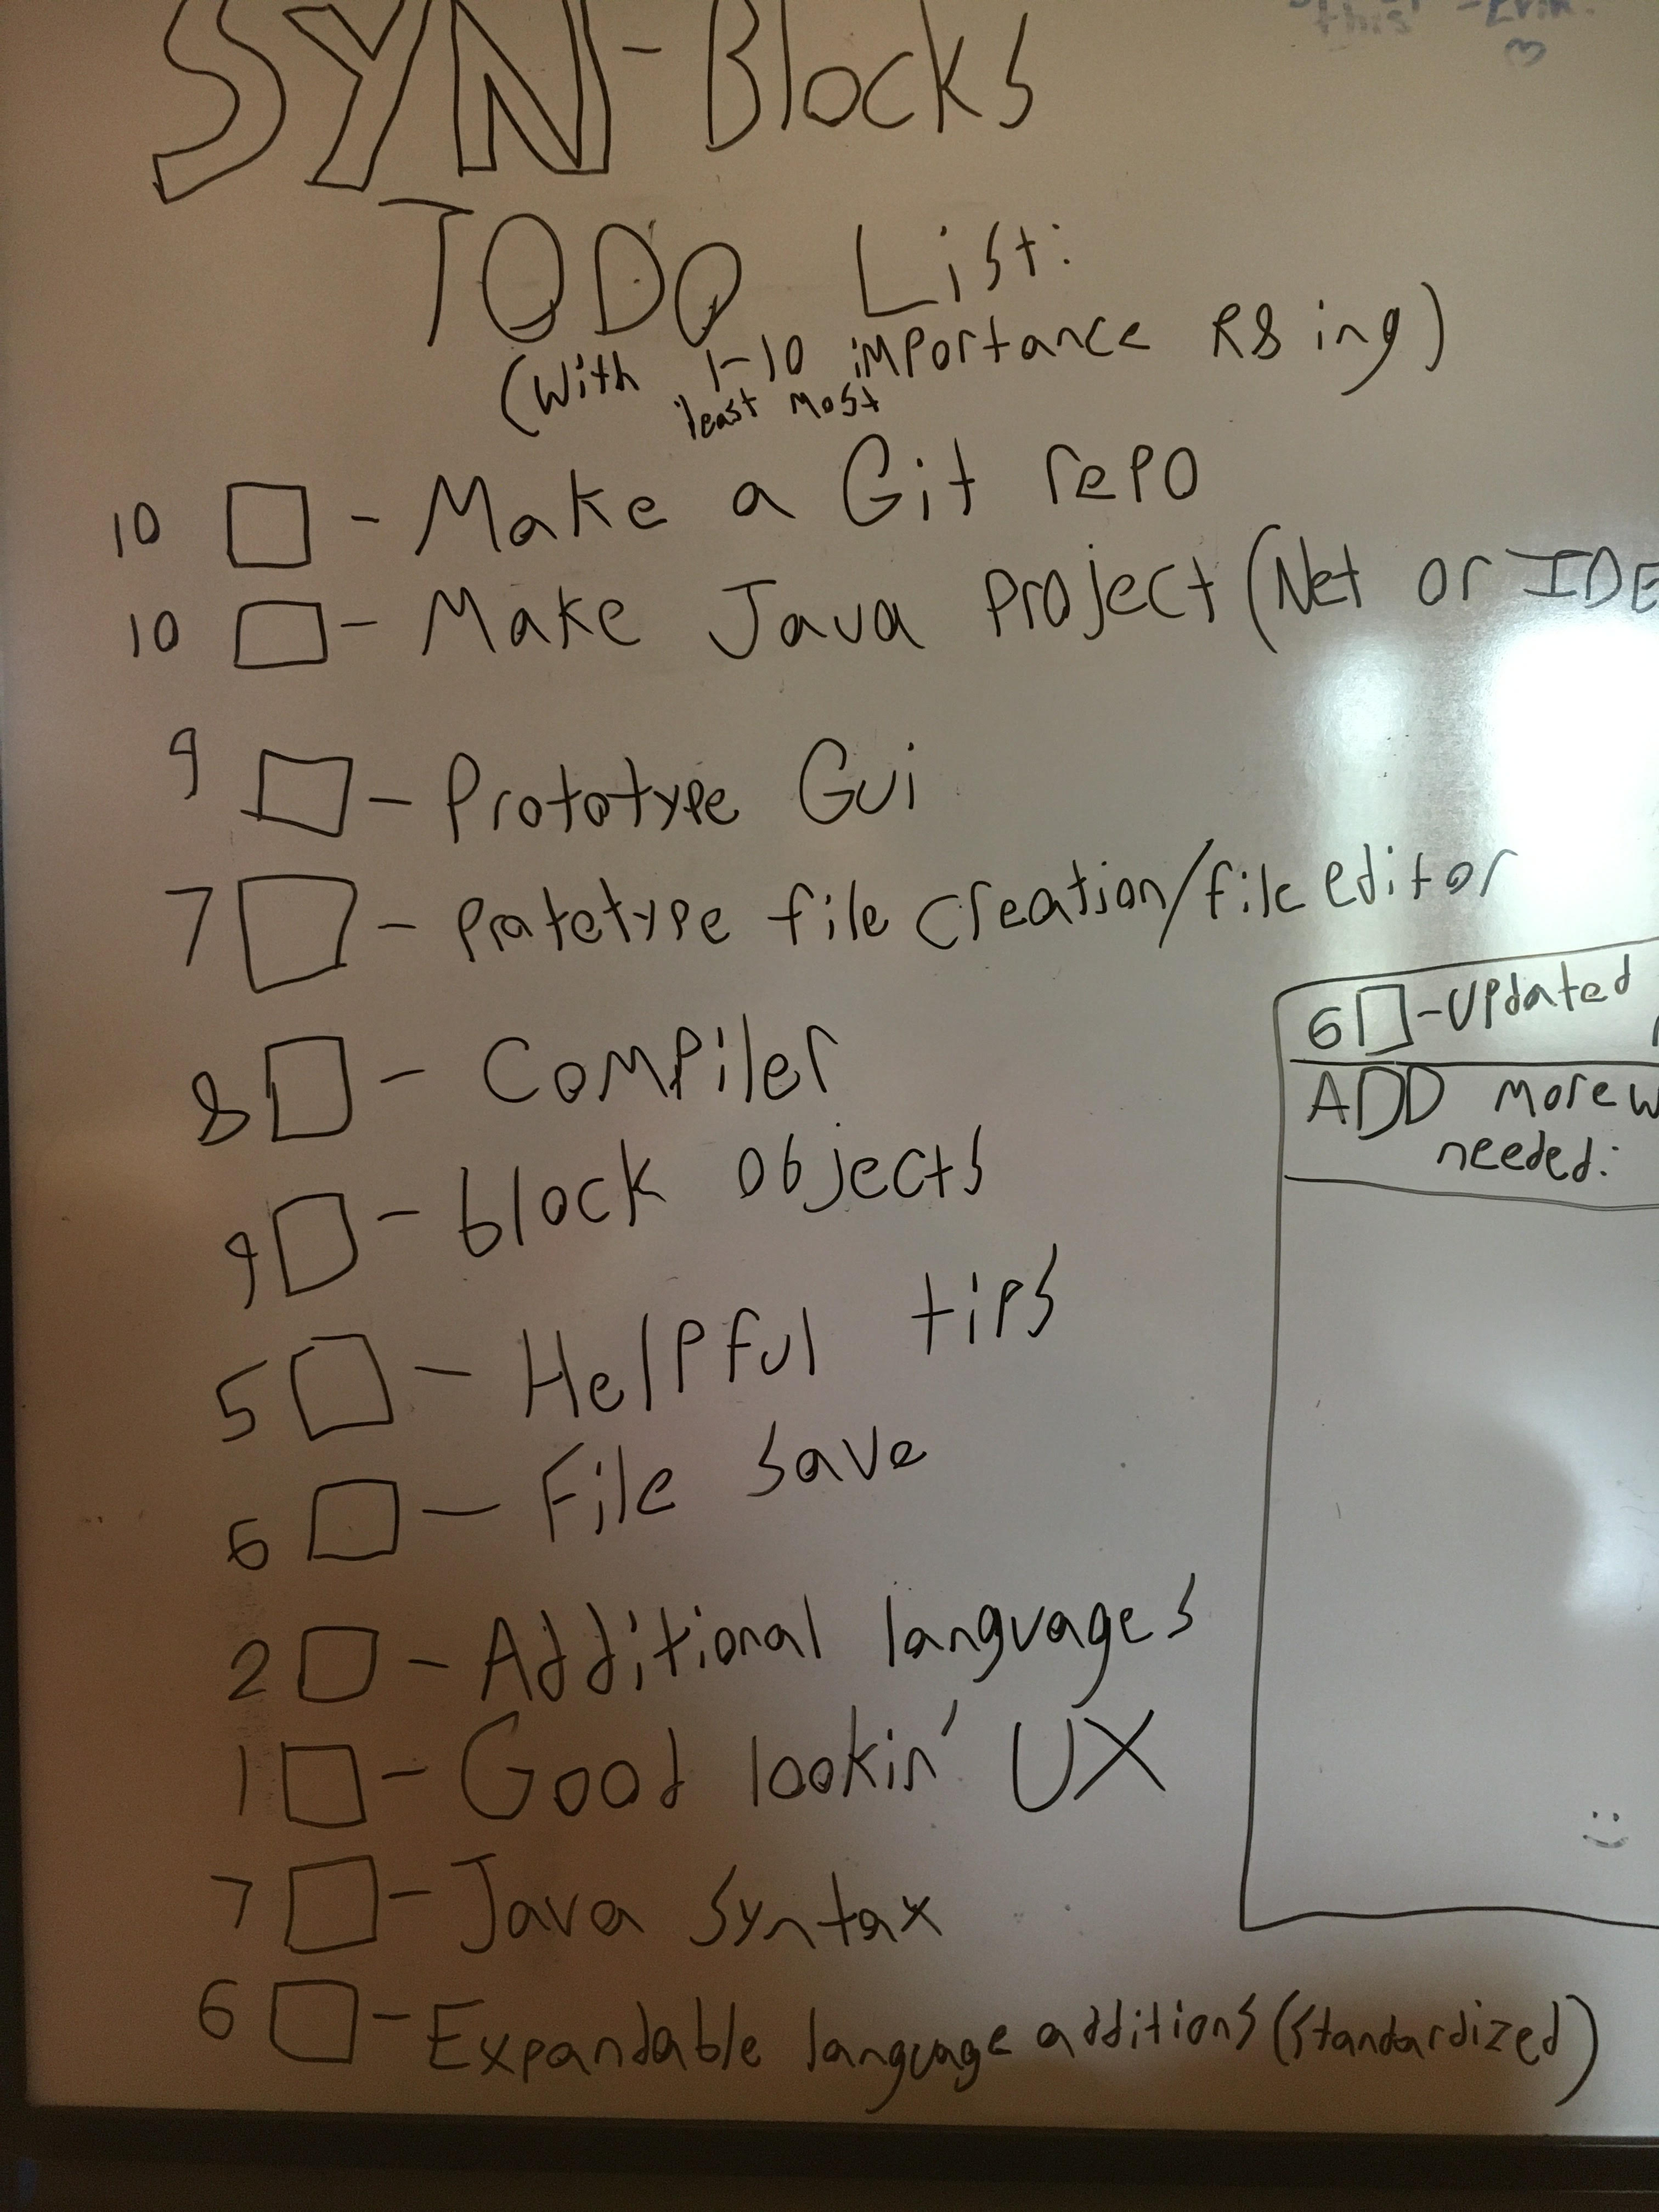 SYN-Blocks
this" -Erin.
TODO List:
(With 1-10 importance R8ing)
least most
10 - Make a Git repo
10 - Make Java Project (Net or IDE
9 - Prototype Gui
7 - Prototype file creation/file editor
8 - Compiler
9 - block objects
5 - Helpful tips
6 - File save
2 - Additional languages
1 - Good lookin' UX
7 - Java syntax
6 - Expandable language additions (standardized)
6 - Updated
ADD more
needed: